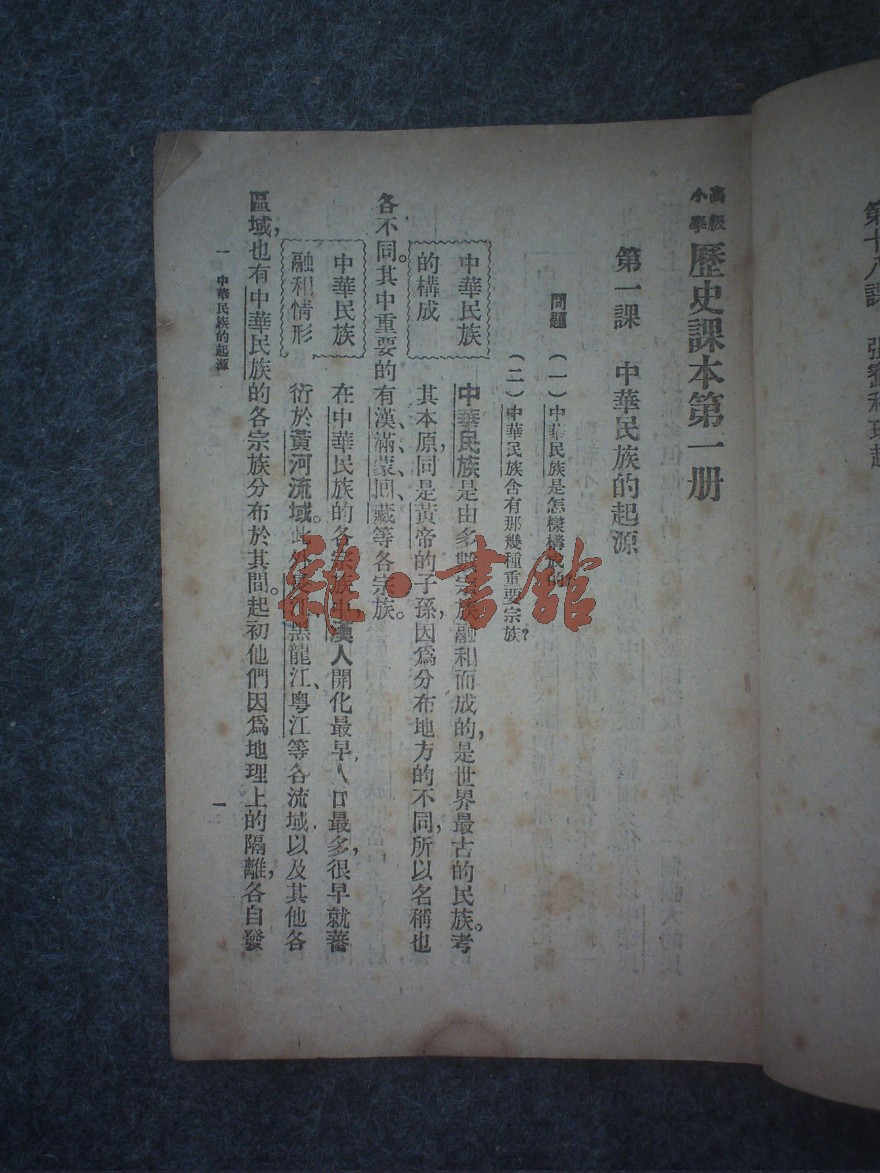 高級小學 歷史課本第一册
第一課 中華民族的起源
問題 (一)中華民族是怎樣構成的?
(二)中華民族含有那幾種重要宗族?
中華民族的構成
中華民族是由多數宗族融和而成的,是世界最古的民族。考
其本原,同是黃帝的子孫,因爲分布地方的不同,所以名稱也
各不同。其中重要的有漢、滿、蒙、回、藏等各宗族。
中華民族融和情形
在中華民族的各宗族中,漢人開化最早,人口最多,很早就蕃
衍於黃河流域。此外長江、黑龍江、粵江等各流域以及其他各
區域,也有中華民族的各宗族分布於其間。起初他們因爲地理上的隔離,各自發
一 中華民族的起源
一
第十八課
雜·書館